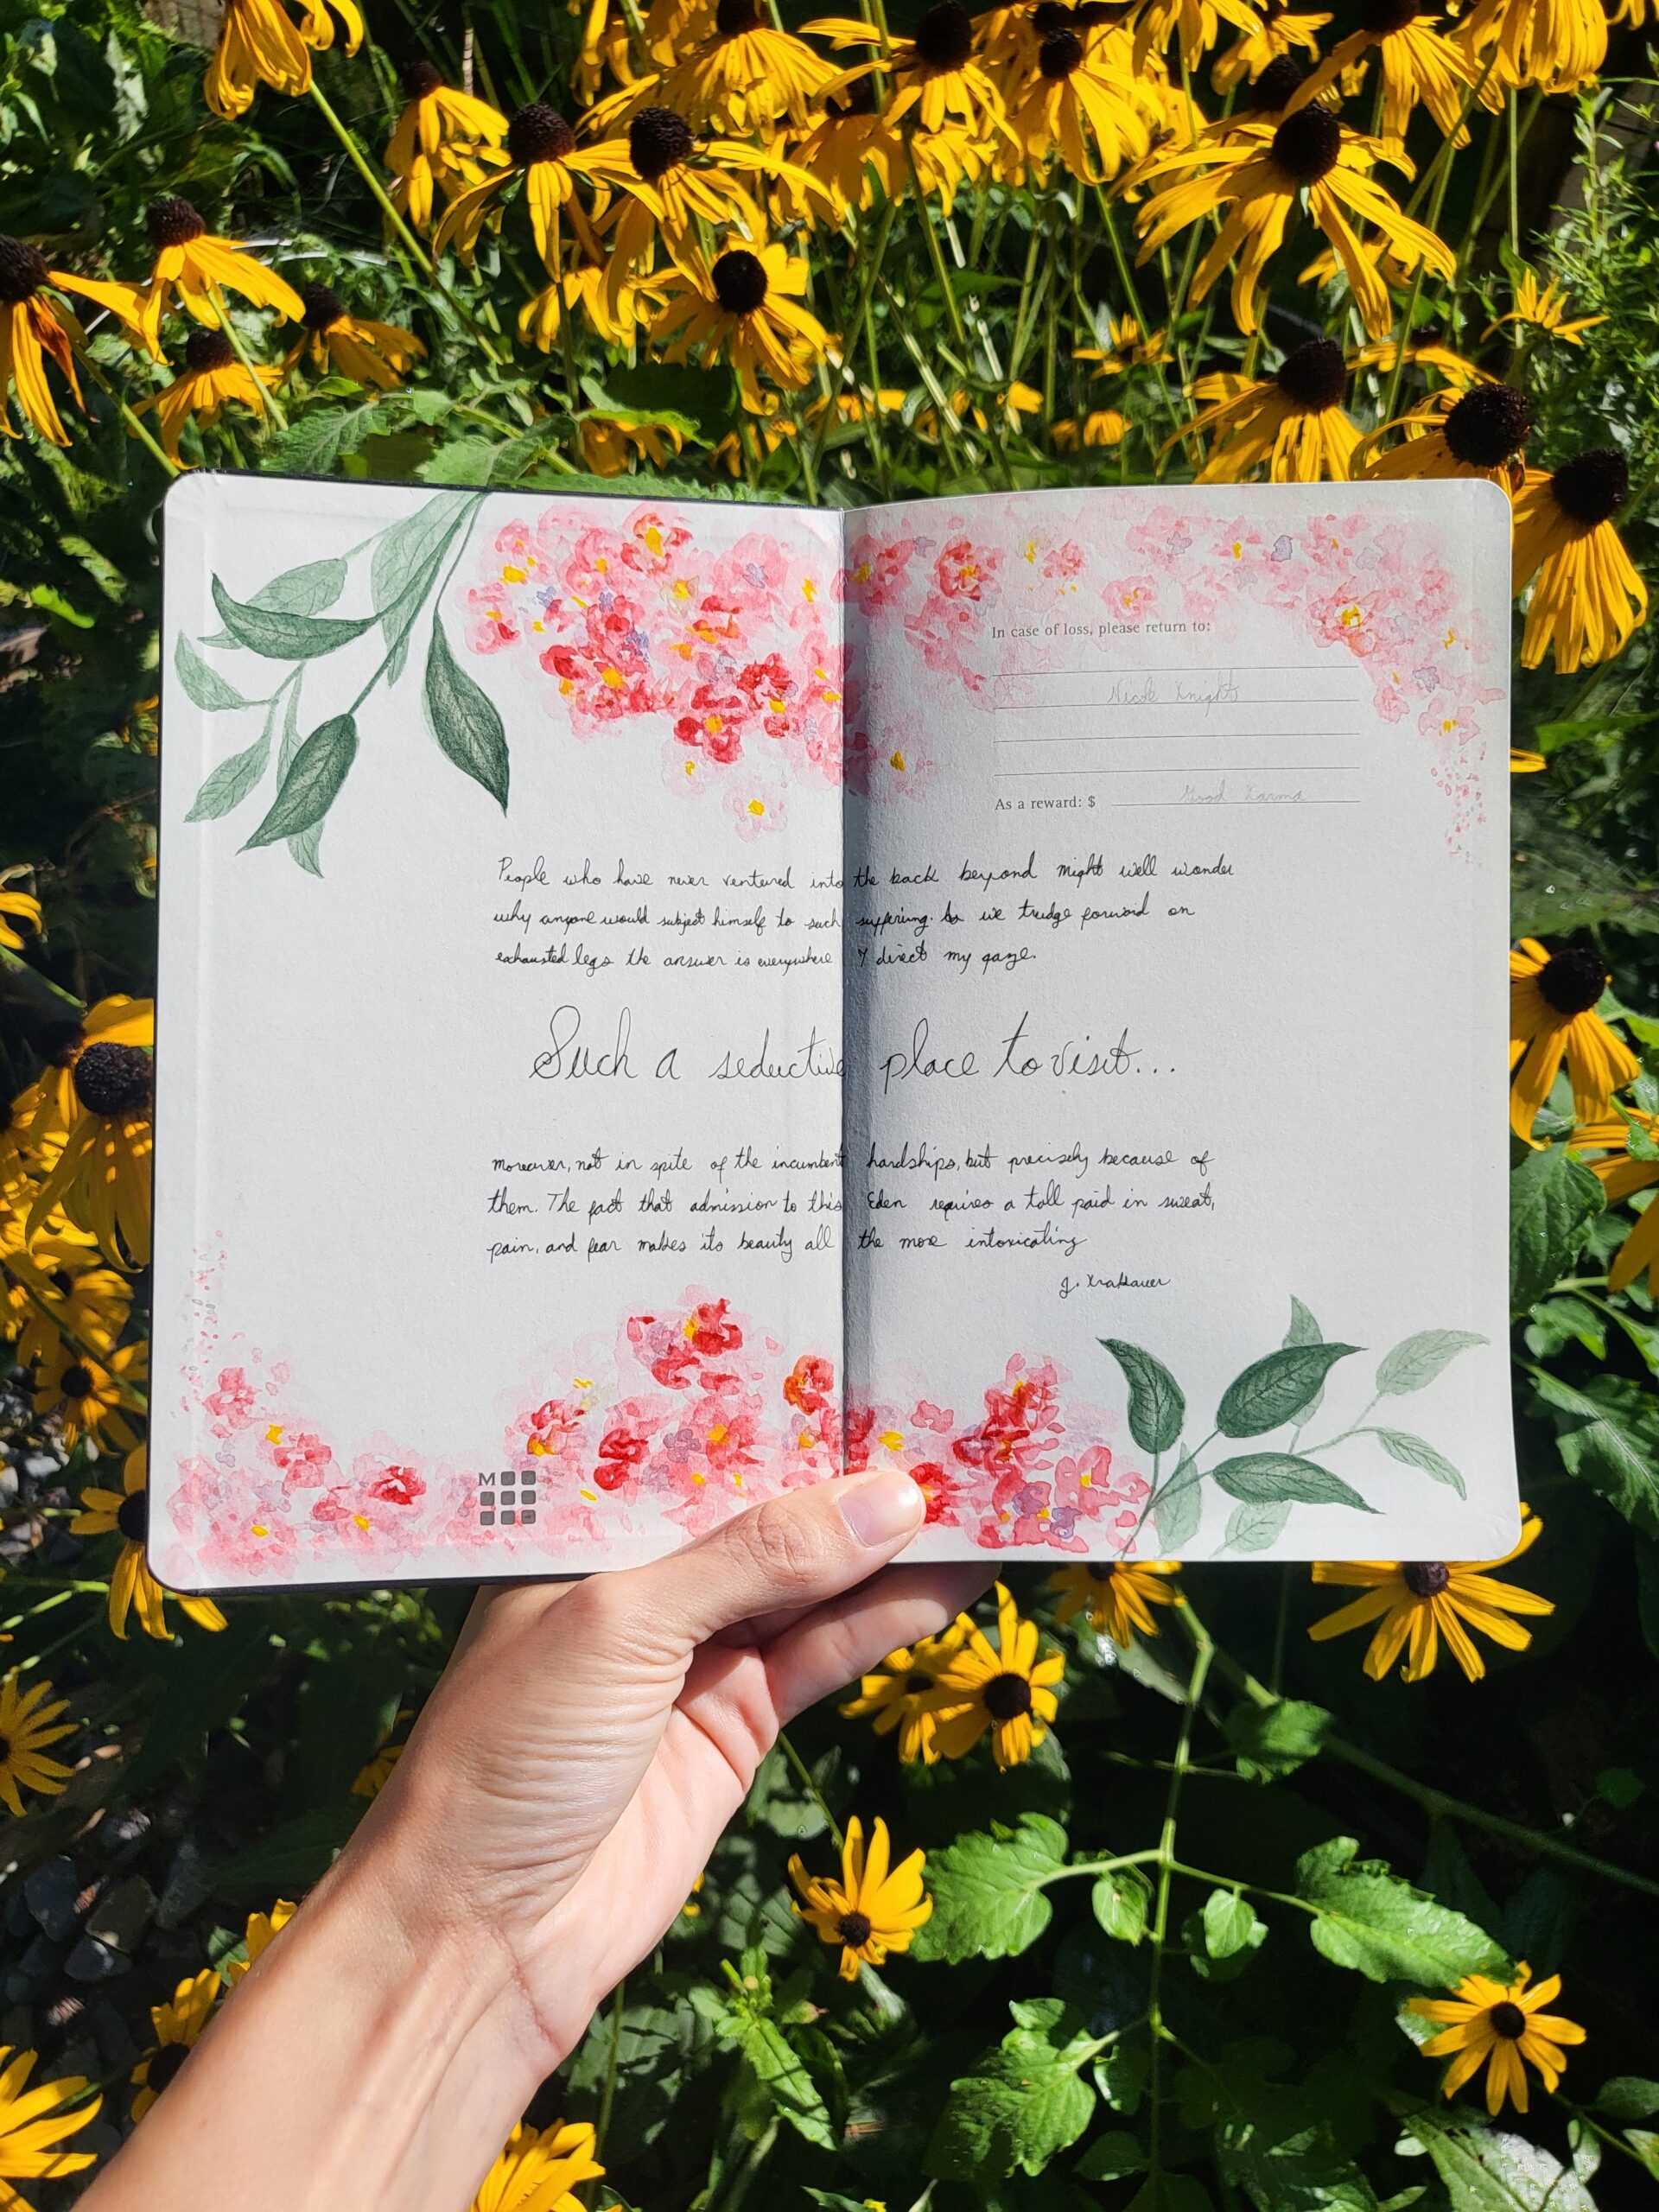 In case of loss, please return to:
Nicole Knight
As a reward: $ Good Karma
People who have never ventured into the back beyond might well wonder
why anyone would subject himself to such suffering. As we trudge forward on
exhausted legs the answer is everywhere I direct my gaze.
Such a seductive place to visit...
moreover, not in spite of the incumbent hardships, but precisely because of
them. The fact that admission to this Eden requires a toll paid in sweat,
pain, and fear makes its beauty all the more intoxicating
J. Krakauer
M